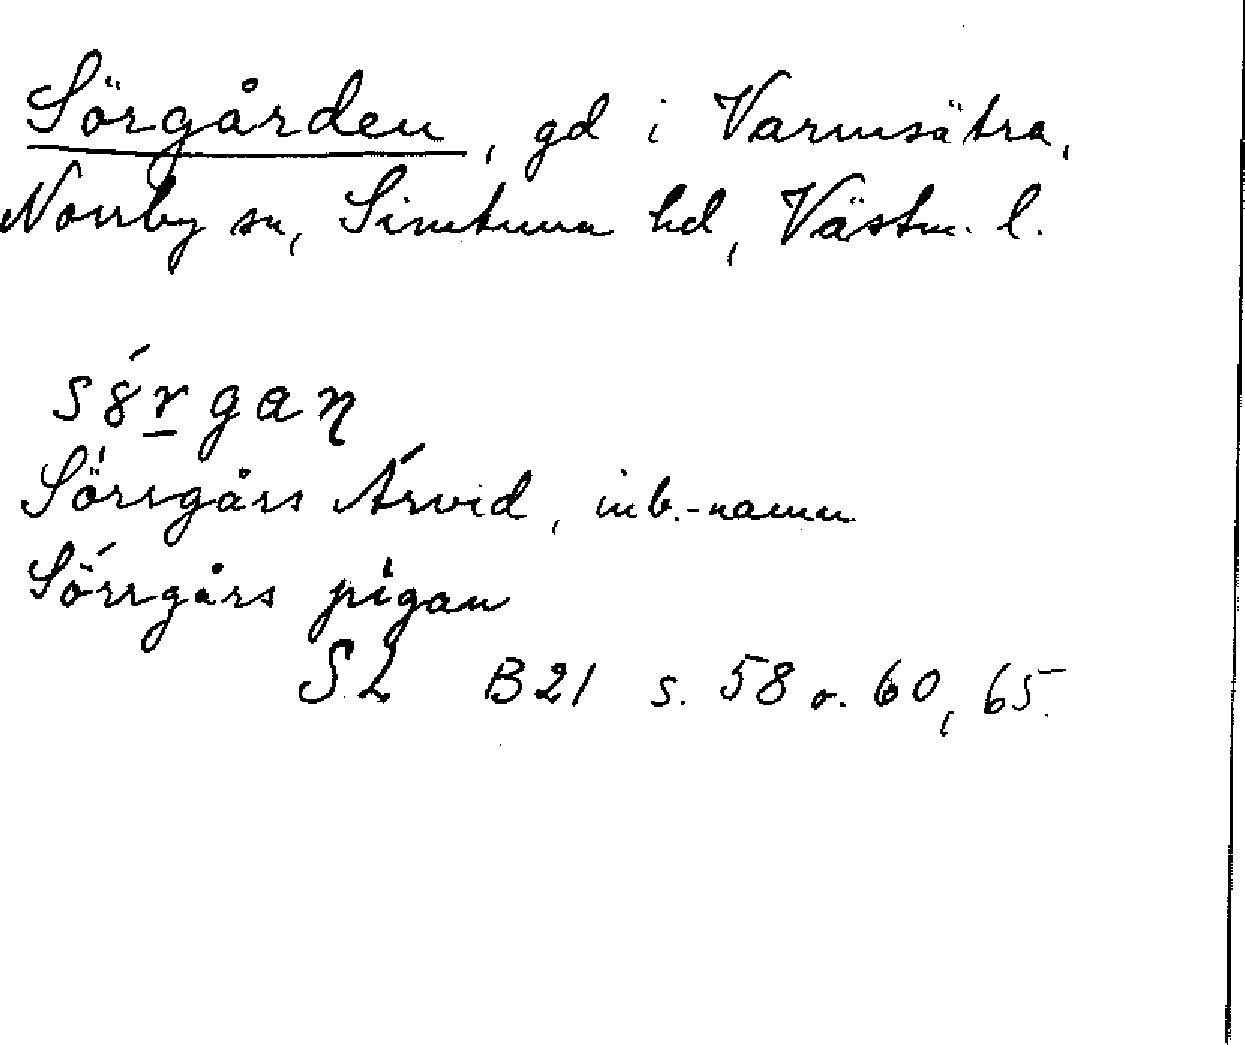 Sörgården, gd i Varmsätra,
Norrby sn, Simtuna hd, Västm. l.
Sörrgårs Árvid, inb.-namn
Sö́rrgårs pigan
SL B21 s. 58 o. 60, 65.